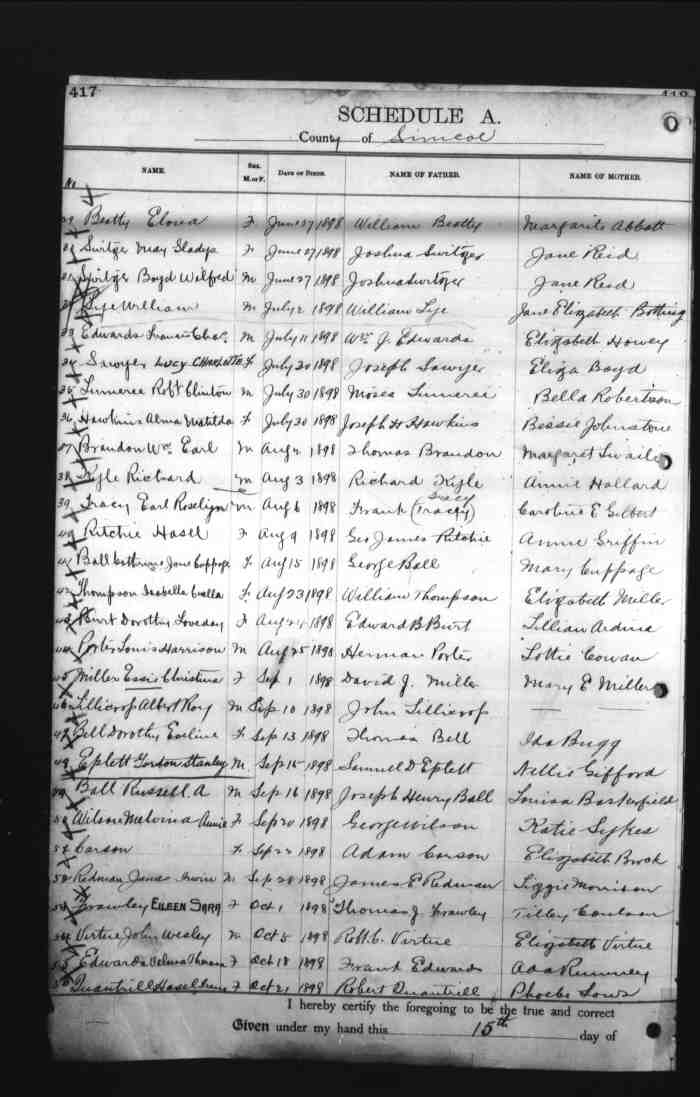 417
SCHEDULE A.
County of Simcoe
NAME. SEX. M. or F. DATE OF BIRTH. NAME OF FATHER. NAME OF MOTHER.
No
29 Beatty F June 27 1898 William Beatty Margarite Abbott
30 Switzer May Gladys F June 27 1898 Joshua Switzer Jane Reid
31 Switzer Boyd Wilfred M June 27 1898 Joshua Switzer Jane Reid
32 Lye William M July 2 1898 William Lye Jane Elizabeth Botting
33 Edwards Francis Chas. M July 11 1898 Wm J. Edwards Elizabeth Howey
34 Sawyer LUCY CHARLOTTE F July 20 1898 Joseph Sawyer Eliza Boyd
35 Robt Clinton M July 30 1898 Moses Bella Robertson
36 Hawkins Alma Matilda F July 30 1898 Joseph H Hawkins Bessie Johnstone
37 Brandon Wm Earl M Aug 2 1898 Thomas Brandon Margaret
38 Kyle Richard M Aug 3 1898 Richard Kyle Annie Hallard
Tracy
39 Tracy Earl Roselyn M Aug 6 1898 Frank (Tracey) Caroline E Gilbert
40 Ritchie Hasel F Aug 9 1898 Geo James Ritchie Annie Griffin
41 Ball Cathrine Jane Cuppage F Aug 15 1898 George Ball Mary Cuppage
42 Thompson Isabella F Aug 23 1898 William Thompson Elizabeth Miller
43 Burt Dorothy Loveday F Aug 1898 Edward B Burt Lillian
44 Porter Louis Harrison M Aug 25 1898 Herman Porter Lottie Cowan
45 Miller Essie Christina F Sep 1 1898 David J. Miller Mary E Miller
46 Lillicrop Albert Roy M Sep 10 1898 John Lillicrop — —
47 Bell Dorothy Eveline F Sep 13 1898 Thomas Bell Ida Bugg
48 Eplett Gordon Stanley M. Sep 15 1898 Samuel D Eplett Nellie Gifford
49 Ball Russell A M Sep 16 1898 Joseph Henry Ball Louisa Baskerfield
50 Wilson Melvina Annie F Sep 20 1898 George Wilson Katie Sykes
51 Carson F Sep 22 1898 Adam Carson Elizabeth Brook
52 Redman James Irwin M Sep 28 1898 James E Redman Lizzie Morrison
53 Frawley EILEEN SARA F Oct 1 1898 Thomas J Frawley Tilley Coulson
54 Virtue John Wesley M Oct 5 1898 Robt C. Virtue Elizabeth Virtue
55 Edwards Velma F Oct 18 1898 Frank Edwards Ada
56 Quantrill Hasel F Oct 21 1898 Robert Quantrill Phoebe
I hereby certify the foregoing to be the true and correct
Given under my hand this 15th day of